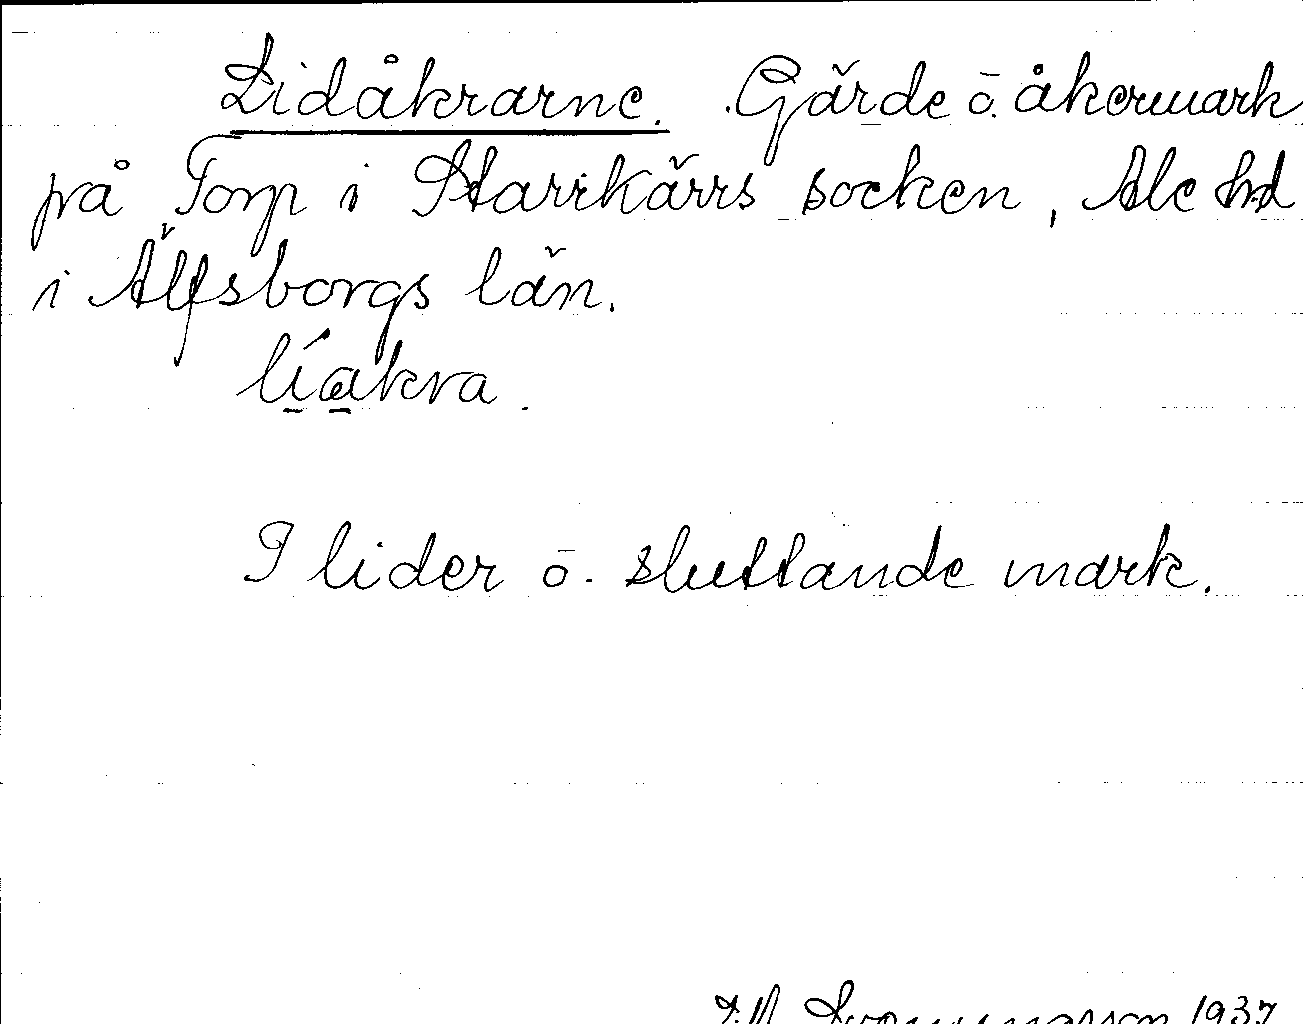 Lidåkrarne. Gärde o. åkermark
på Torp i Starrkärrs socken, Ale hd
i Älfsborgs län.
líakra.
I lider o. sluttande mark.
1937